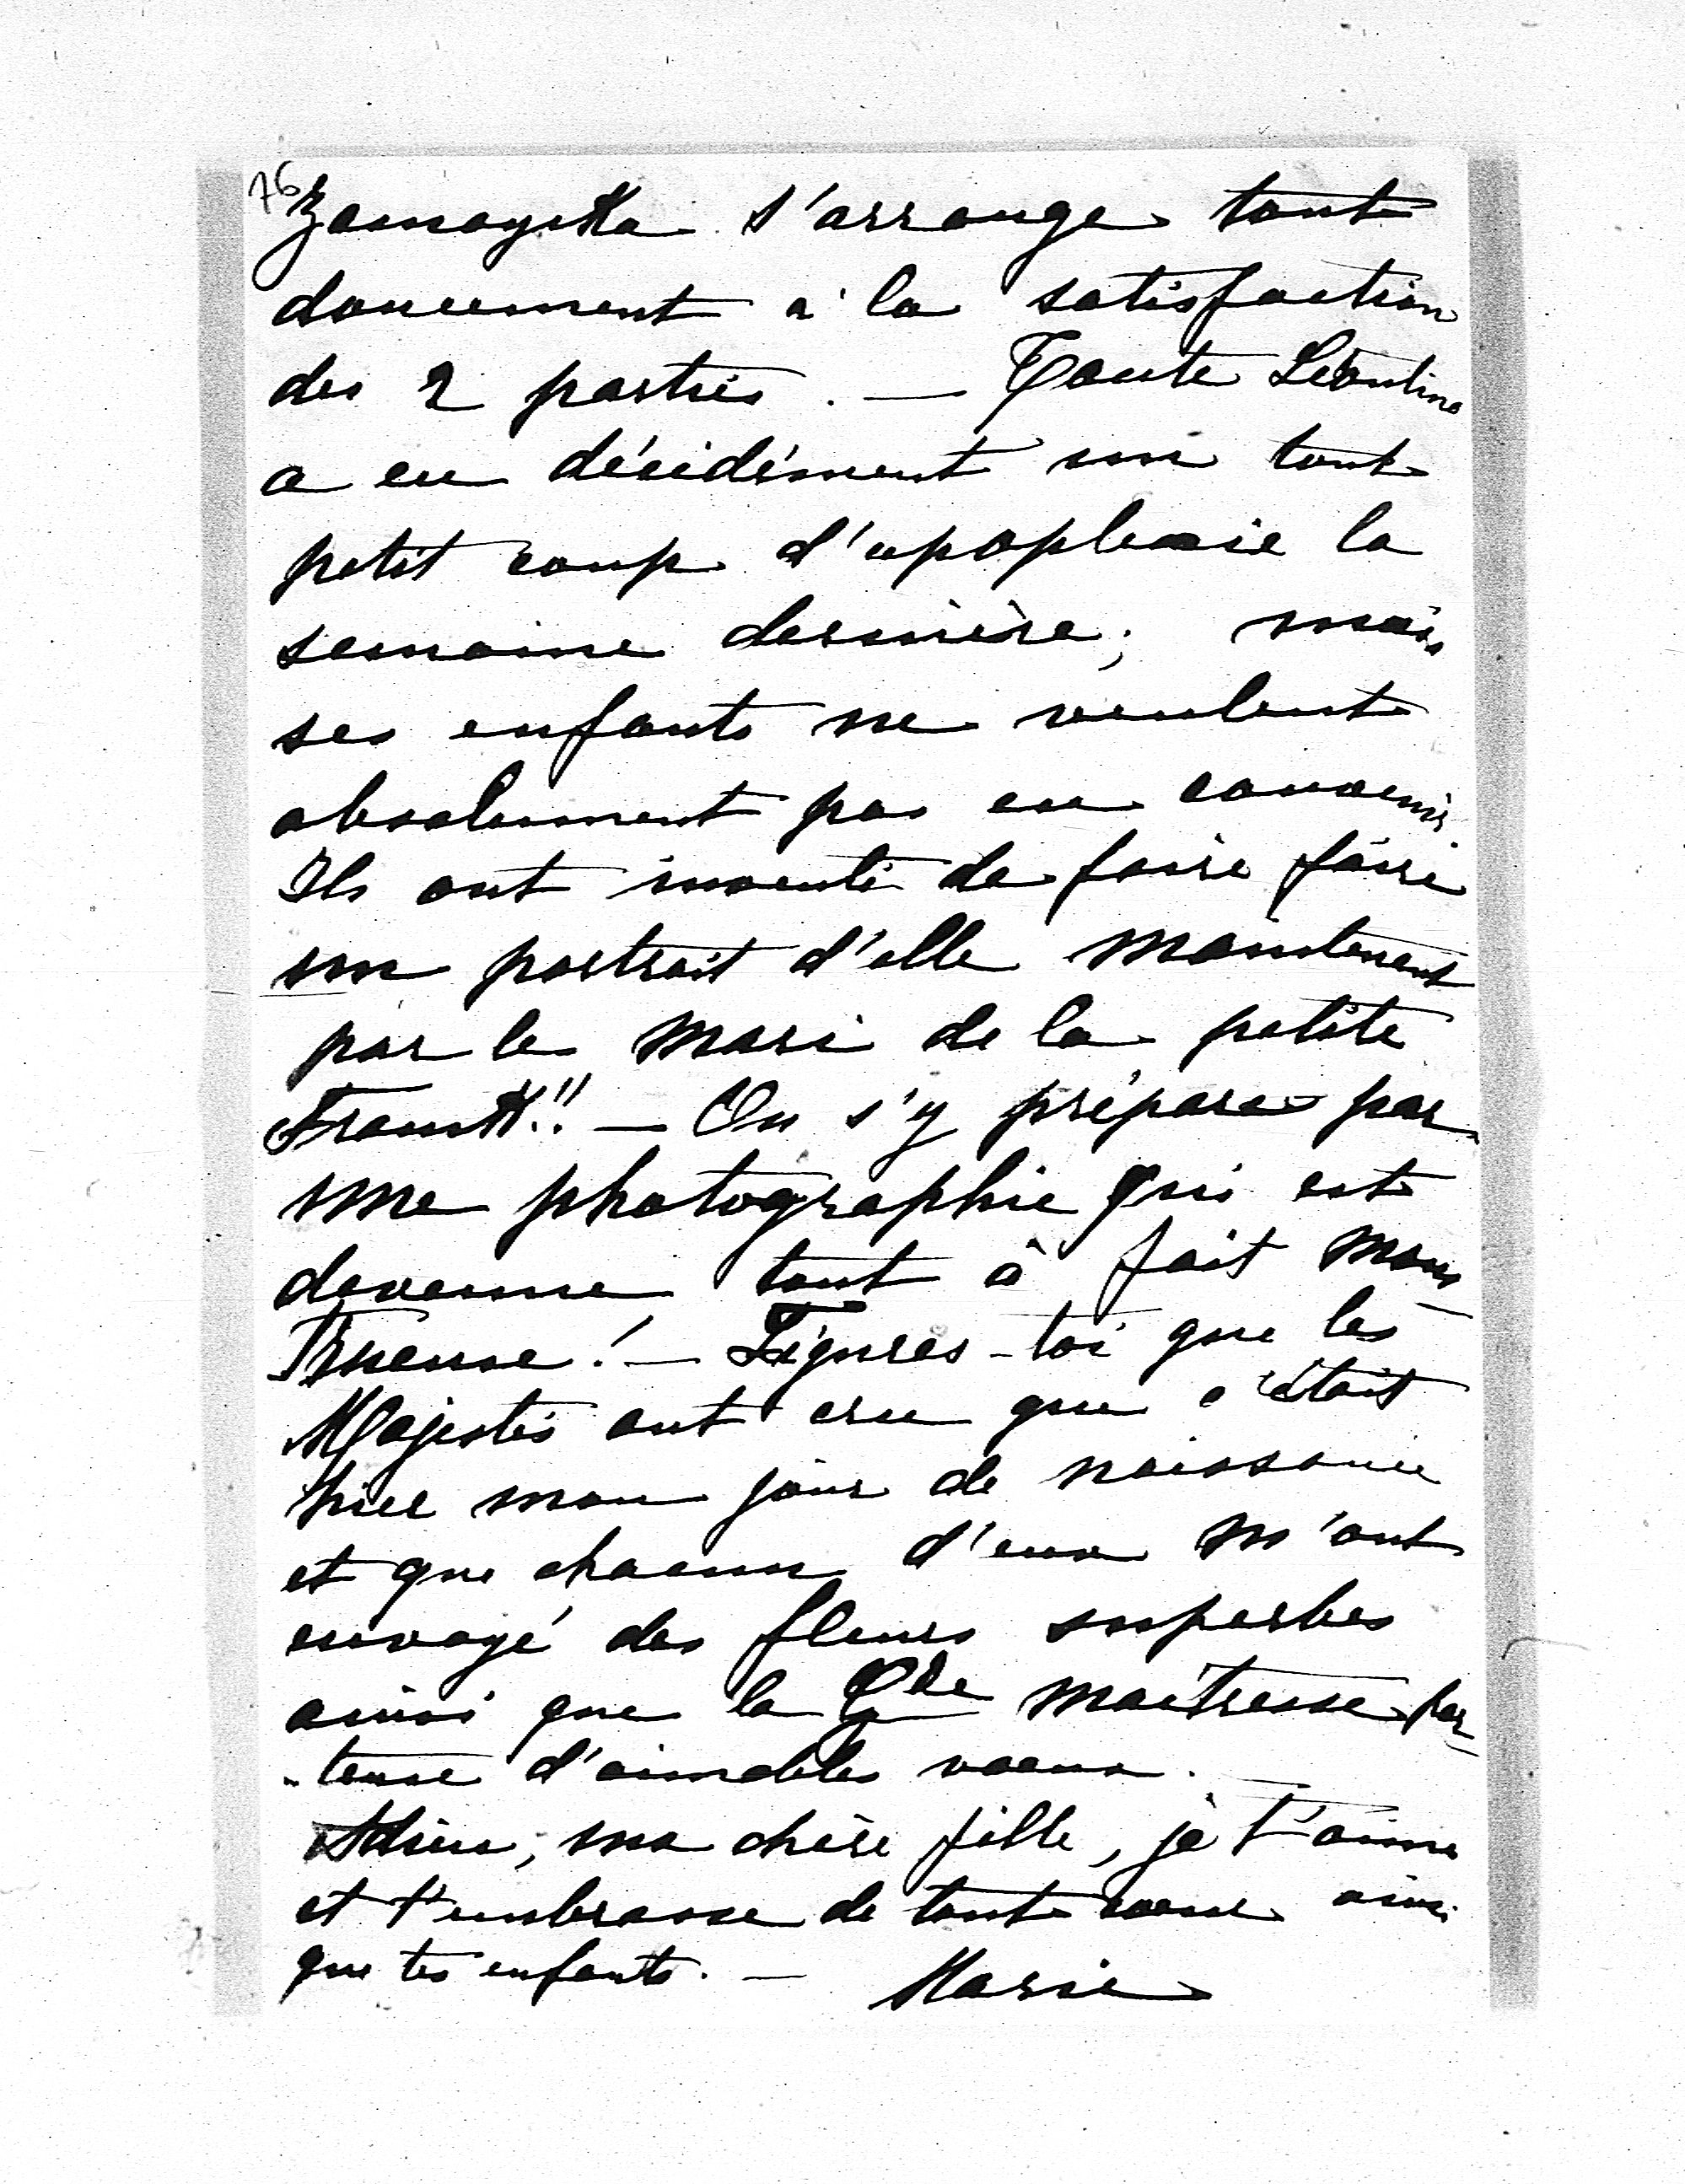 76
Zamoyska s'arrange tout
doucement à la satisfaction
des 2 parties. — Tante Léontine
a eu décidément un tout
petit coup d'apoplexie la
semaine dernière; mais
ses enfants ne veulent
absolument pas en convenir
Ils ont inventé de faire faire
un portrait d'elle maintenant
par le mari de la petite
— On s'y prépare par
une photographie qui est
devenue tout à fait mons
trueuse! — Figures-toi que les
Majestés ont cru que c'était
hier mon jour de naissance
et que chacun d'eux m'ont
envoyé des fleurs superbes
ainsi que la Gde maîtresse por-
-teuse d'aimables voeux.
Adieu, ma chère fille, je t'aime
et t'embrasse de tout coeur ainsi
que tes enfants. — Marie